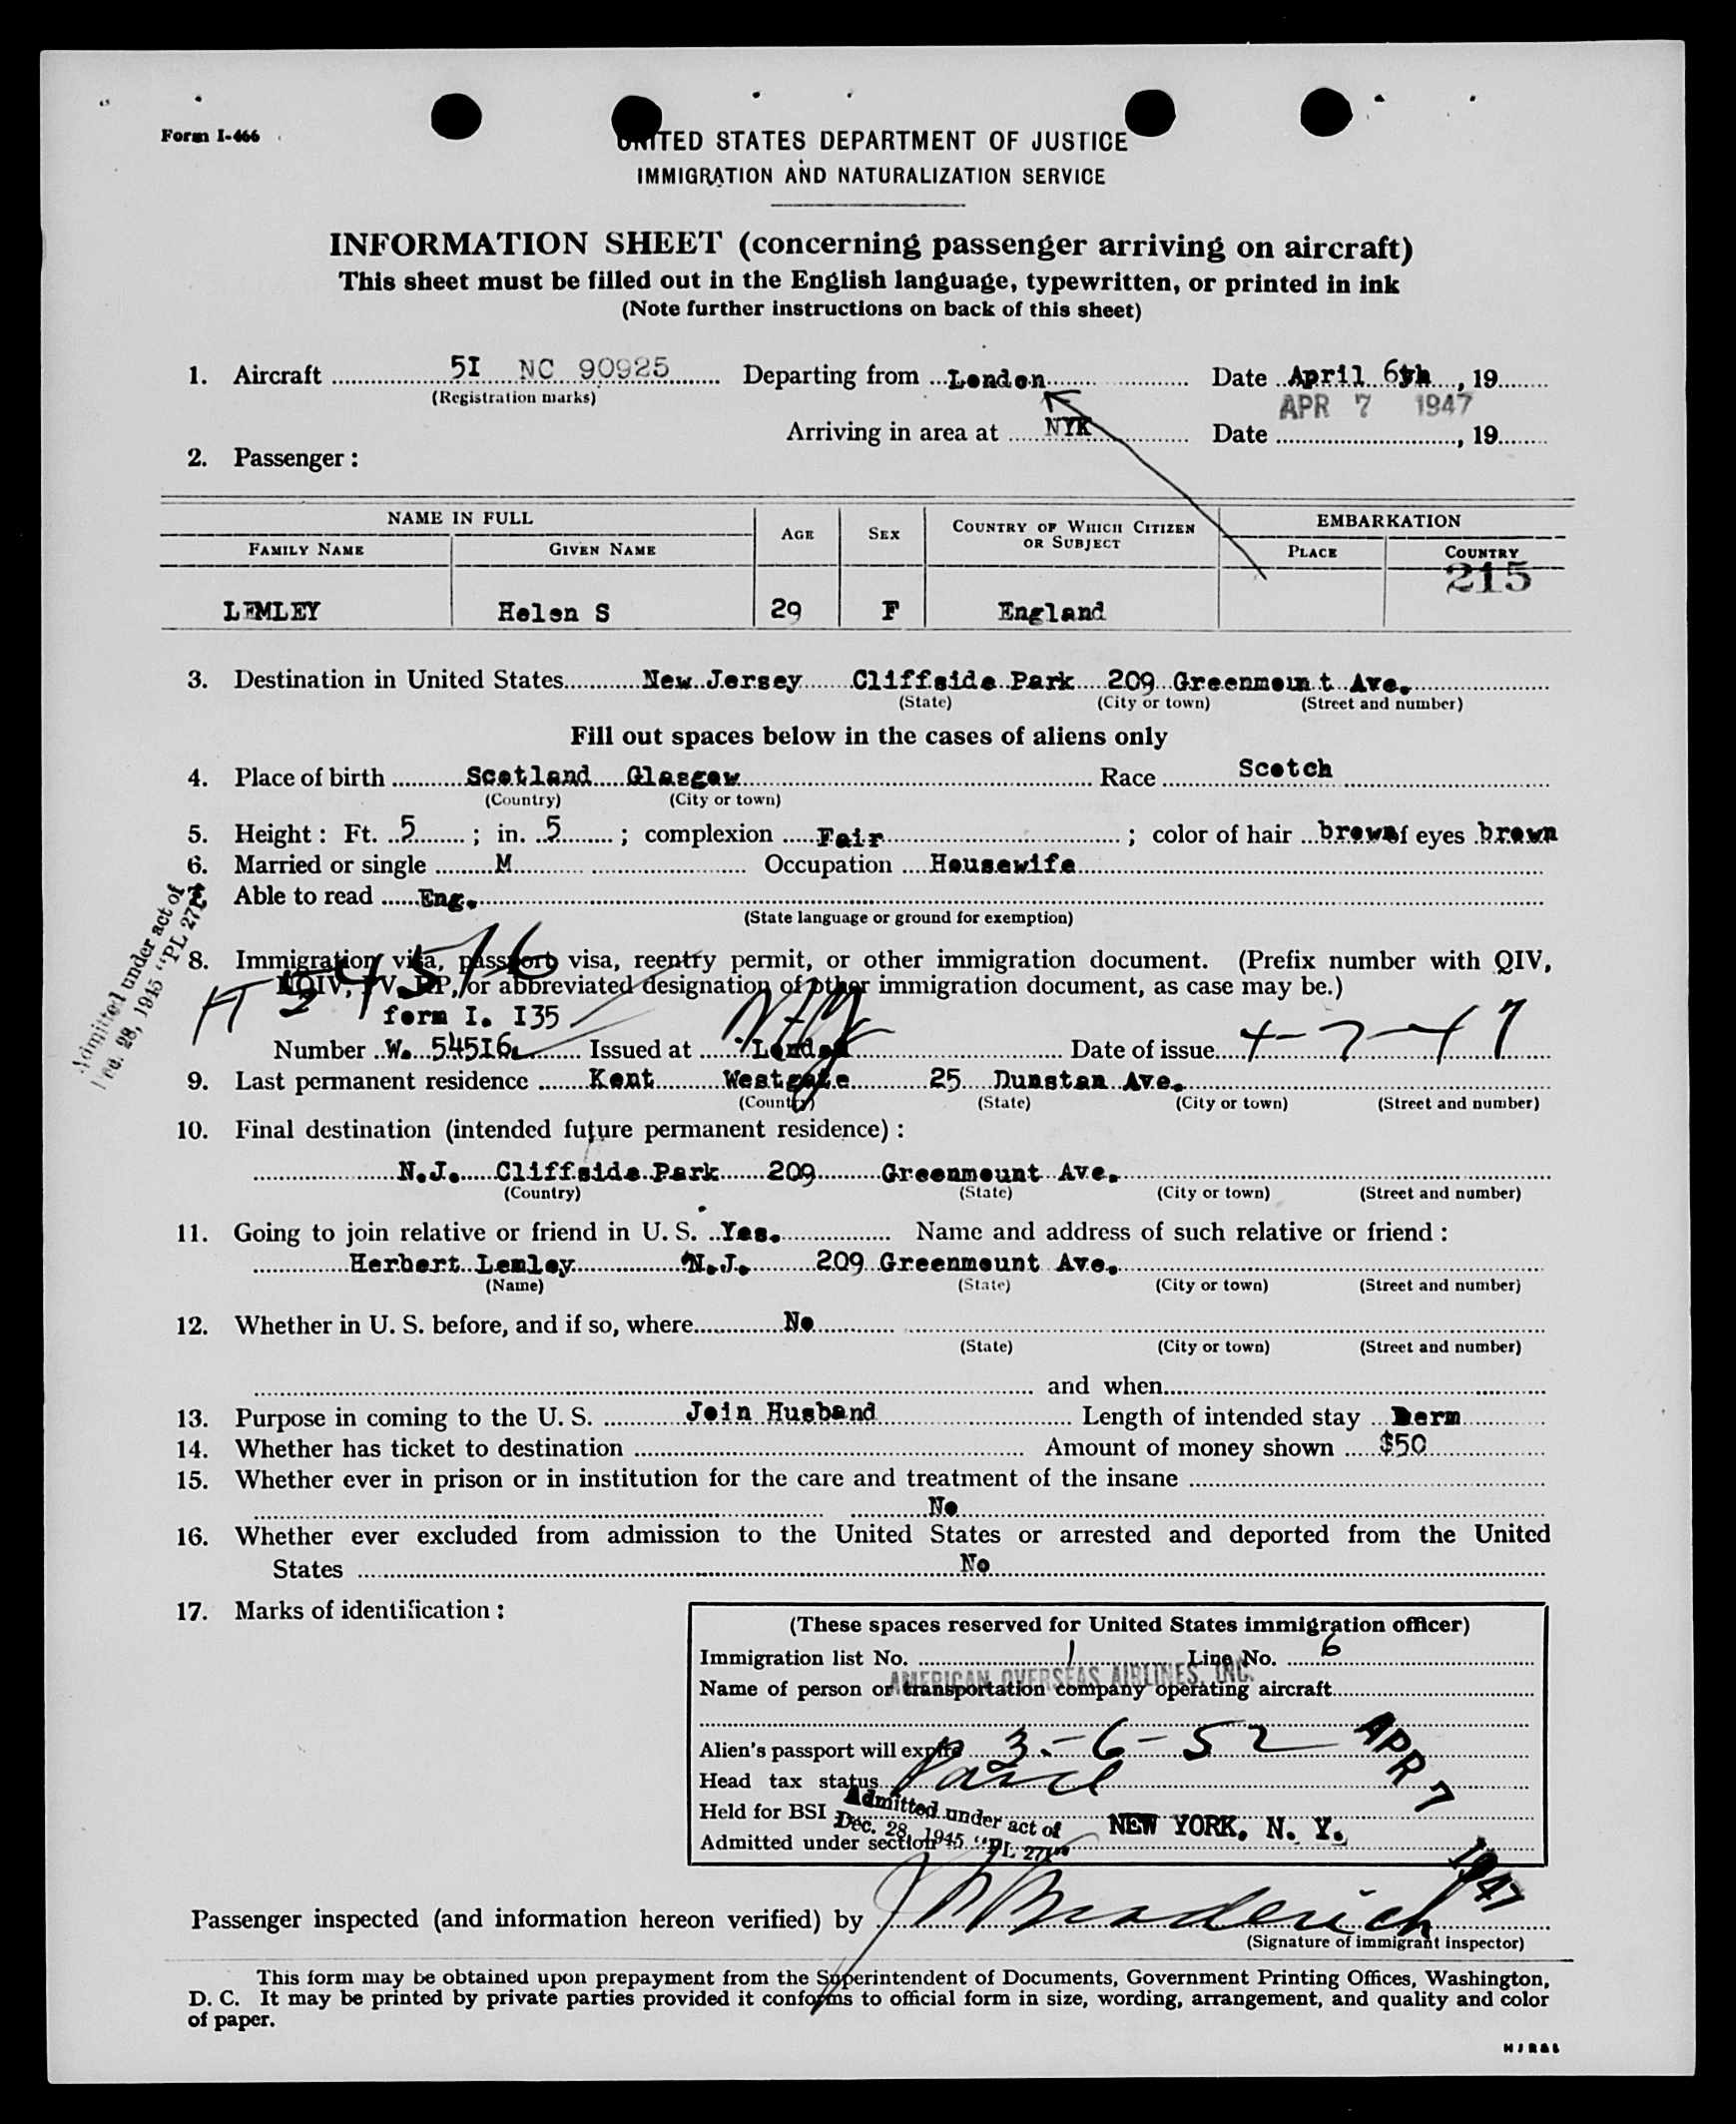 Form I-466
UNITED STATES DEPARTMENT OF JUSTICE
IMMIGRATION AND NATURALIZATION SERVICE
INFORMATION SHEET (concerning passenger arriving on aircraft)
This sheet must be filled out in the English language, typewritten, or printed in ink
(Note further instructions on back of this sheet)
1. Aircraft 5I NC 90925 Departing from London Date April 6th, 19
(Registration marks) APR 7 1947
Arriving in area at NYK Date , 19
2. Passenger :
NAME IN FULL AGE SEX COUNTRY OF WHICH CITIZEN OR SUBJECT EMBARKATION
FAMILY NAME GIVEN NAME PLACE COUNTRY
215
LEMLEY Helen S 29 F England
3. Destination in United States New Jersey Cliffside Park 209 Greenmount Ave.
(State) (City or town) (Street and number)
Fill out spaces below in the cases of aliens only
4. Place of birth Scotland Glasgow Race Scotch
(Country) (City or town)
5. Height : Ft. 5 ; in. 5 ; complexion Fair ; color of hair brown of eyes brown
6. Married or single M Occupation Housewife
7. Able to read Eng.
(State language or ground for exemption)
Admitted under act of
Dec. 28, 1945 "PL 271"
8. Immigration visa, passport visa, reentry permit, or other immigration document. (Prefix number with QIV,
NQIV, PV, RP, or abbreviated designation of other immigration document, as case may be.)
54516
form I. I35
Number W. 54516. Issued at London Date of issue 4-7-47
9. Last permanent residence Kent Westgate 25 Dunstan Ave.
(Country) (State) (City or town) (Street and number)
10. Final destination (intended future permanent residence) :
N.J. Cliffside Park 209 Greenmount Ave.
(Country) (State) (City or town) (Street and number)
11. Going to join relative or friend in U. S. Yes. Name and address of such relative or friend :
Herbert Lemley N.J. 209 Greenmount Ave.
(Name) (State) (City or town) (Street and number)
12. Whether in U. S. before, and if so, where No
(State) (City or town) (Street and number)
and when
13. Purpose in coming to the U. S. Join Husband Length of intended stay Perm
14. Whether has ticket to destination Amount of money shown $50
15. Whether ever in prison or in institution for the care and treatment of the insane
No
16. Whether ever excluded from admission to the United States or arrested and deported from the United
States No
17. Marks of identification :
(These spaces reserved for United States immigration officer)
Immigration list No. 1 Line No. 6
AMERICAN OVERSEAS AIRLINES, INC.
Name of person or transportation company operating aircraft
Alien's passport will expire 3-6-52
Head tax status Paid
Held for BSI
Admitted under section
Admitted under act of
Dec. 28, 1945 "PL 271"
NEW YORK, N. Y.
APR 7 1947
Passenger inspected (and information hereon verified) by Broderick
(Signature of immigrant inspector)
This form may be obtained upon prepayment from the Superintendent of Documents, Government Printing Offices, Washington,
D. C. It may be printed by private parties provided it conforms to official form in size, wording, arrangement, and quality and color
of paper.